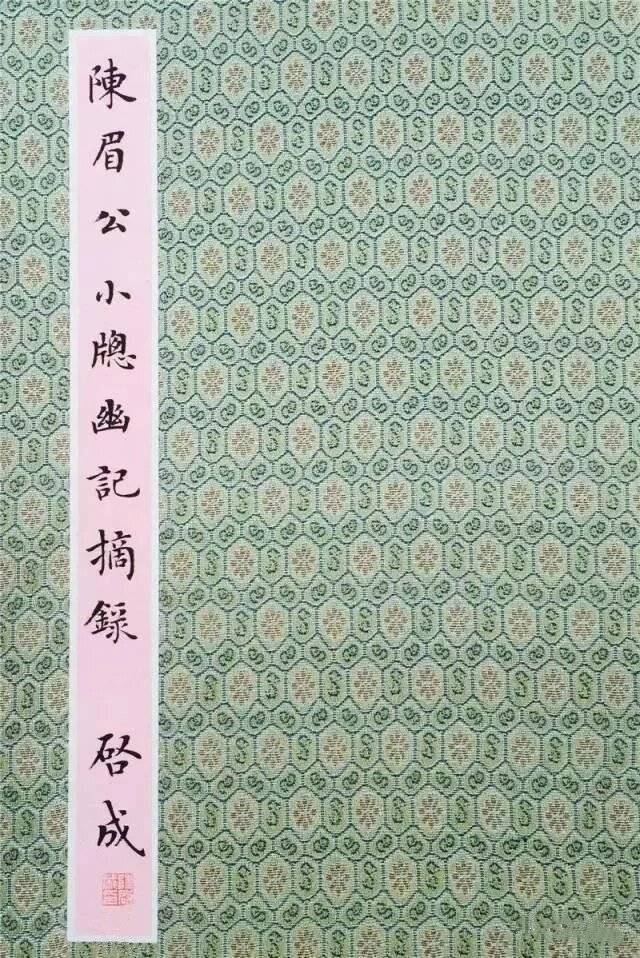 陳眉公小牕幽記摘錄 啓成